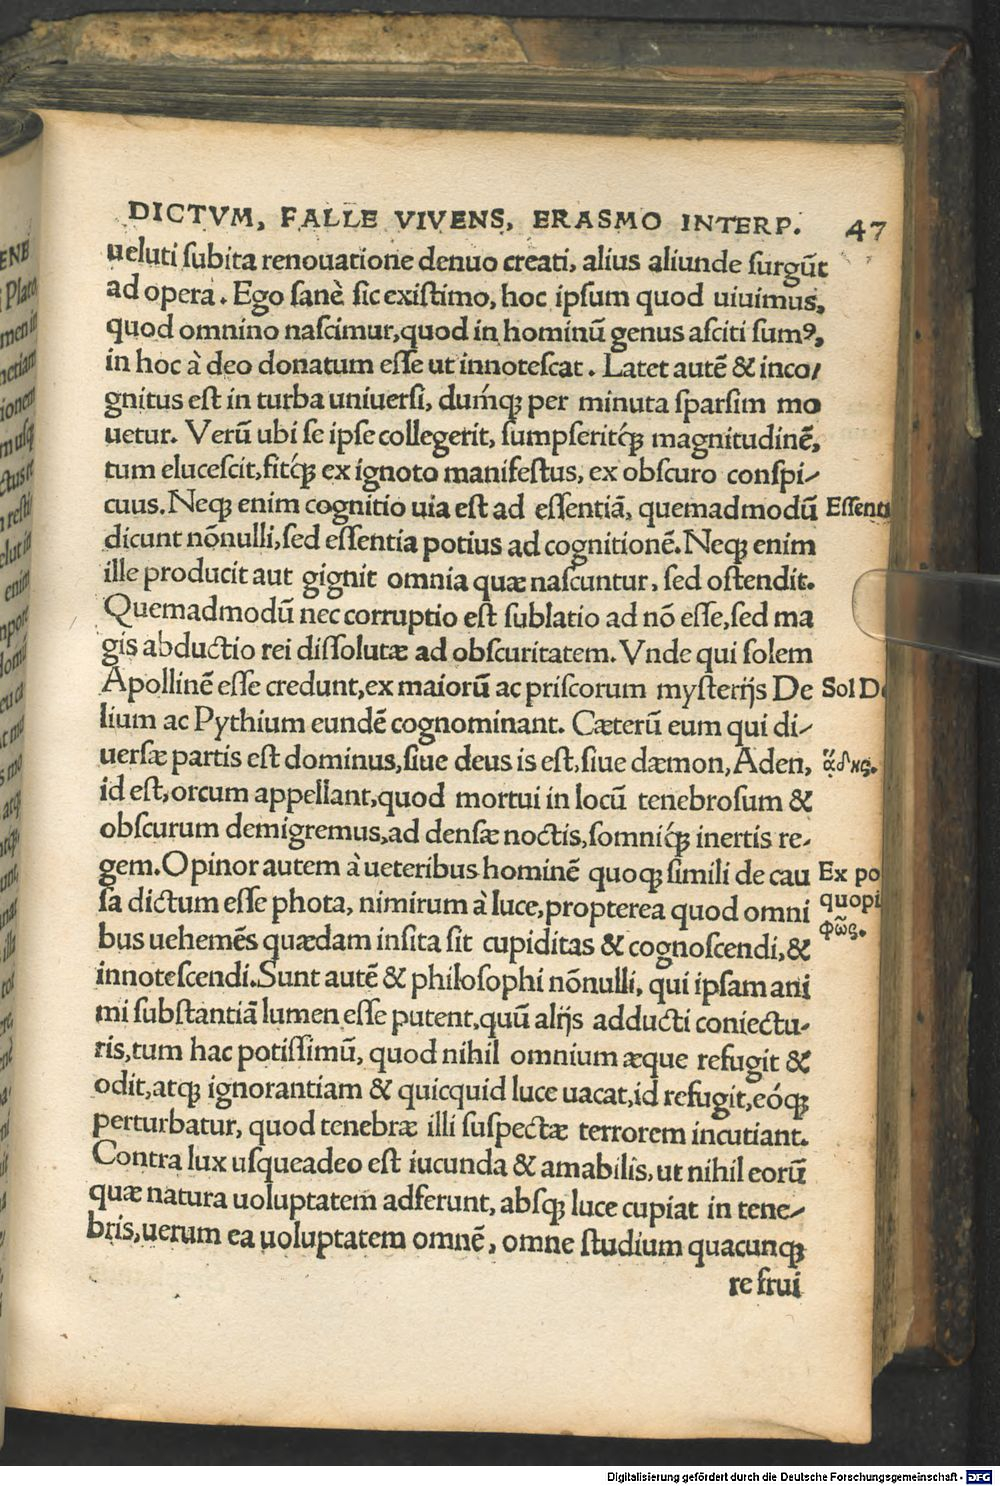 DICTVM, FALLE VIVENS, ERASMO INTERP. 47
ueluti subita renouatione denuo creati, alius aliunde surgūt
ad opera. Ego sanè sic existimo, hoc ipsum quod uiuimus,
quod omnino nascimur, quod in hominū genus asciti sumꝰ,
in hoc à deo donatum esse ut innotescat. Latet autē & inco/
gnitus est in turba uniuersi, dumꝗ́ꝫ per minuta sparsim mo
uetur. Verū ubi se ipse collegerit, sumpseritꝗ́ꝫ magnitudinē,
tum elucescit, fitꝗ́ꝫ ex ignoto manifestus, ex obscuro conspi/
cuus. Neqꝫ enim cognitio uia est ad essentiā, quemadmodū Essent
dicunt nōnulli, sed essentia potius ad cognitionē. Neqꝫ enim
ille producit aut gignit omnia quæ nascuntur, sed ostendit.
Quemadmodū nec corruptio est sublatio ad nō esse, sed ma
gis abductio rei dissolutæ ad obscuritatem. Vnde qui solem
Apollinē esse credunt, ex maiorū ac priscorum mysterijs De Sol D
lium ac Pythium eundē cognominant. Cæterū eum qui di/
uersæ partis est dominus, siue deus is est, siue dæmon, Aden, ᾅδης.
id est, orcum appellant, quod mortui in locū tenebrosum &
obscurum demigremus, ad densæ noctis, somniꝗ́ꝫ inertis re/
gem. Opinor autem à ueteribus hominē quoqꝫ simili de cau Ex po
sa dictum esse phota, nimirum à luce, propterea quod omni quopi
bus uehemēs quædam insita sit cupiditas & cognoscendi, & φῶς.
innotescendi. Sunt autē & philosophi nōnulli, qui ipsam ani
mi substantiā lumen esse putent, quū alijs adducti coniectu/
ris, tum hac potissimū, quod nihil omnium æque refugit &
odit, atqꝫ ignorantiam & quicquid luce uacat, id refugit, eóqꝫ
perturbatur, quod tenebræ illi suspectæ terrorem incutiant.
Contra lux usqueadeo est iucunda & amabilis, ut nihil eorū
quæ natura uoluptatem adferunt, absqꝫ luce cupiat in tene/
bris, uerum ea uoluptatem omnē, omne studium quacunqꝫ
re frui
Digitalisierung gefördert durch die Deutsche Forschungsgemeinschaft - DFG